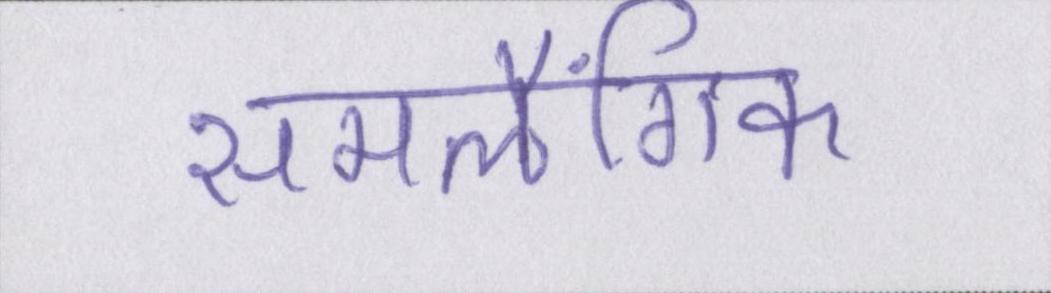 समलैंगिक